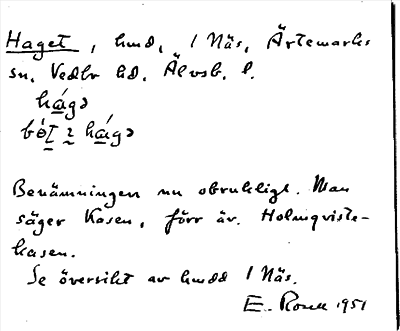 Haget, hmd, 1 Näs, Ärtemarks
sn, Vedbo hd, Älvsb. l.
hágə
bót ɩ hágə
Benämningen nu obruklig. Man
säger Kasen, förr äv. Holmqviste-
kasen.
Se översikt av hmdd 1 Näs.
E. Rosell 1951